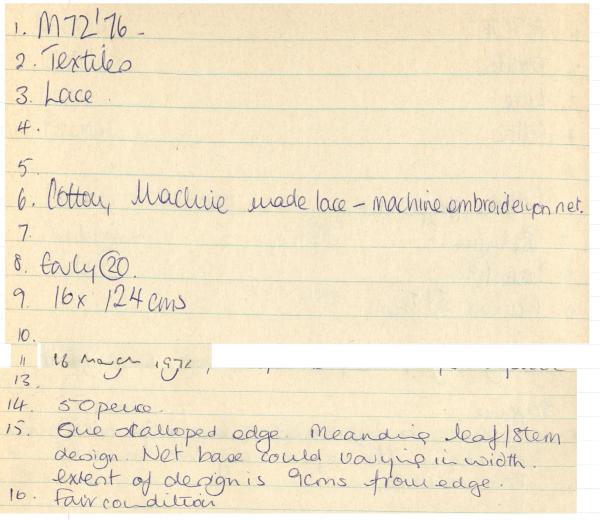 1. M72'76 -
2. Textiles
3. Lace
4.
5.
6. Cotton, Machine made lace - machine embroidery on net.
7.
8. Early 20.
9. 16 x 124 cms
10.
11 16 March
13.
14. 50 pence.
15. One scalloped edge. Meanding leaf/stem
design. Net base could varying in width.
extent of design is 9cms from edge.
16. Fair condition